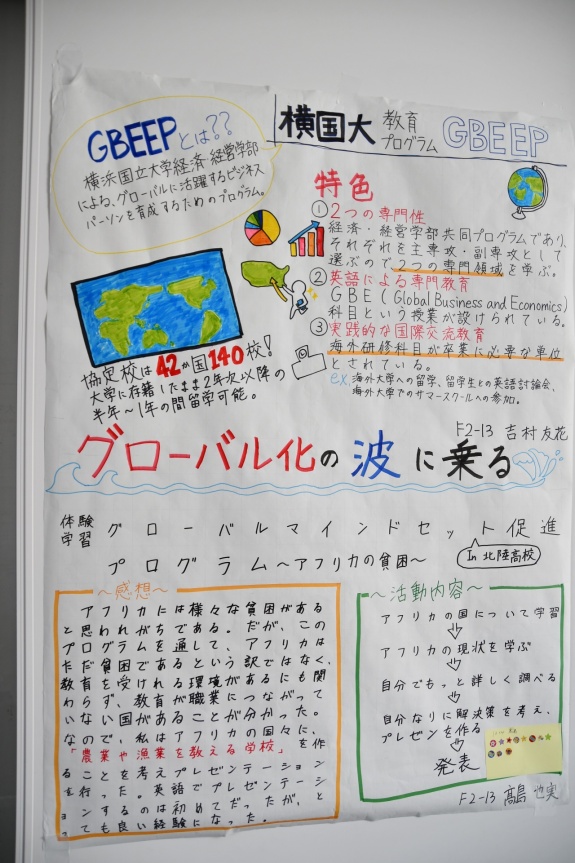 GBEEPとは??
横浜国立大学経済・経営学部
による、グローバルに活躍するビジネス
パーソンを育成するためのプログラム。
横国大 教育プログラム GBEEP
特色
① 2つの専門性
経済・経営学部共同プログラムであり、
それぞれを主専攻・副専攻として
選ぶので2つの専門領域を学ぶ。
② 英語による専門教育
GBE (Global Business and Economics)
科目という授業が設けられている。
③ 実践的な国際交流教育
海外研修科目が卒業に必要な単位
とされている。
ex, 海外大学への留学、留学生との英語討論会、
海外大学でのサマースクールへの参加。
協定校は42か国140校!
大学に在籍したまま2年次以降の
半年～1年の間留学可能。
F2-13 吉村友花
グローバル化の波に乗る
体験
学習
グローバルマインドセット促進
プログラム～アフリカの貧困～
In 北陸高校
～感想～
アフリカには様々な貧困がある
と思われがちである。だが、この
プログラムを通して、アフリカは
ただ貧困であるという訳ではなく、
教育を受けれる環境があるにも関
わらず、教育が職業につながって
いない国があることが分かった。
なので、私はアフリカの国々に、
「農業や漁業を教える学校」を作
ることを考えプレゼンテーション
を行った。英語でプレゼンテーシ
ョンするのは初めてだったが、と
ても良い経験になった。
～活動内容～
アフリカの国について学習
アフリカの現状を学ぶ
自分でもっと詳しく調べる
自分なりに解決策を考え、
プレゼンを作る
発表
F2-13 髙島